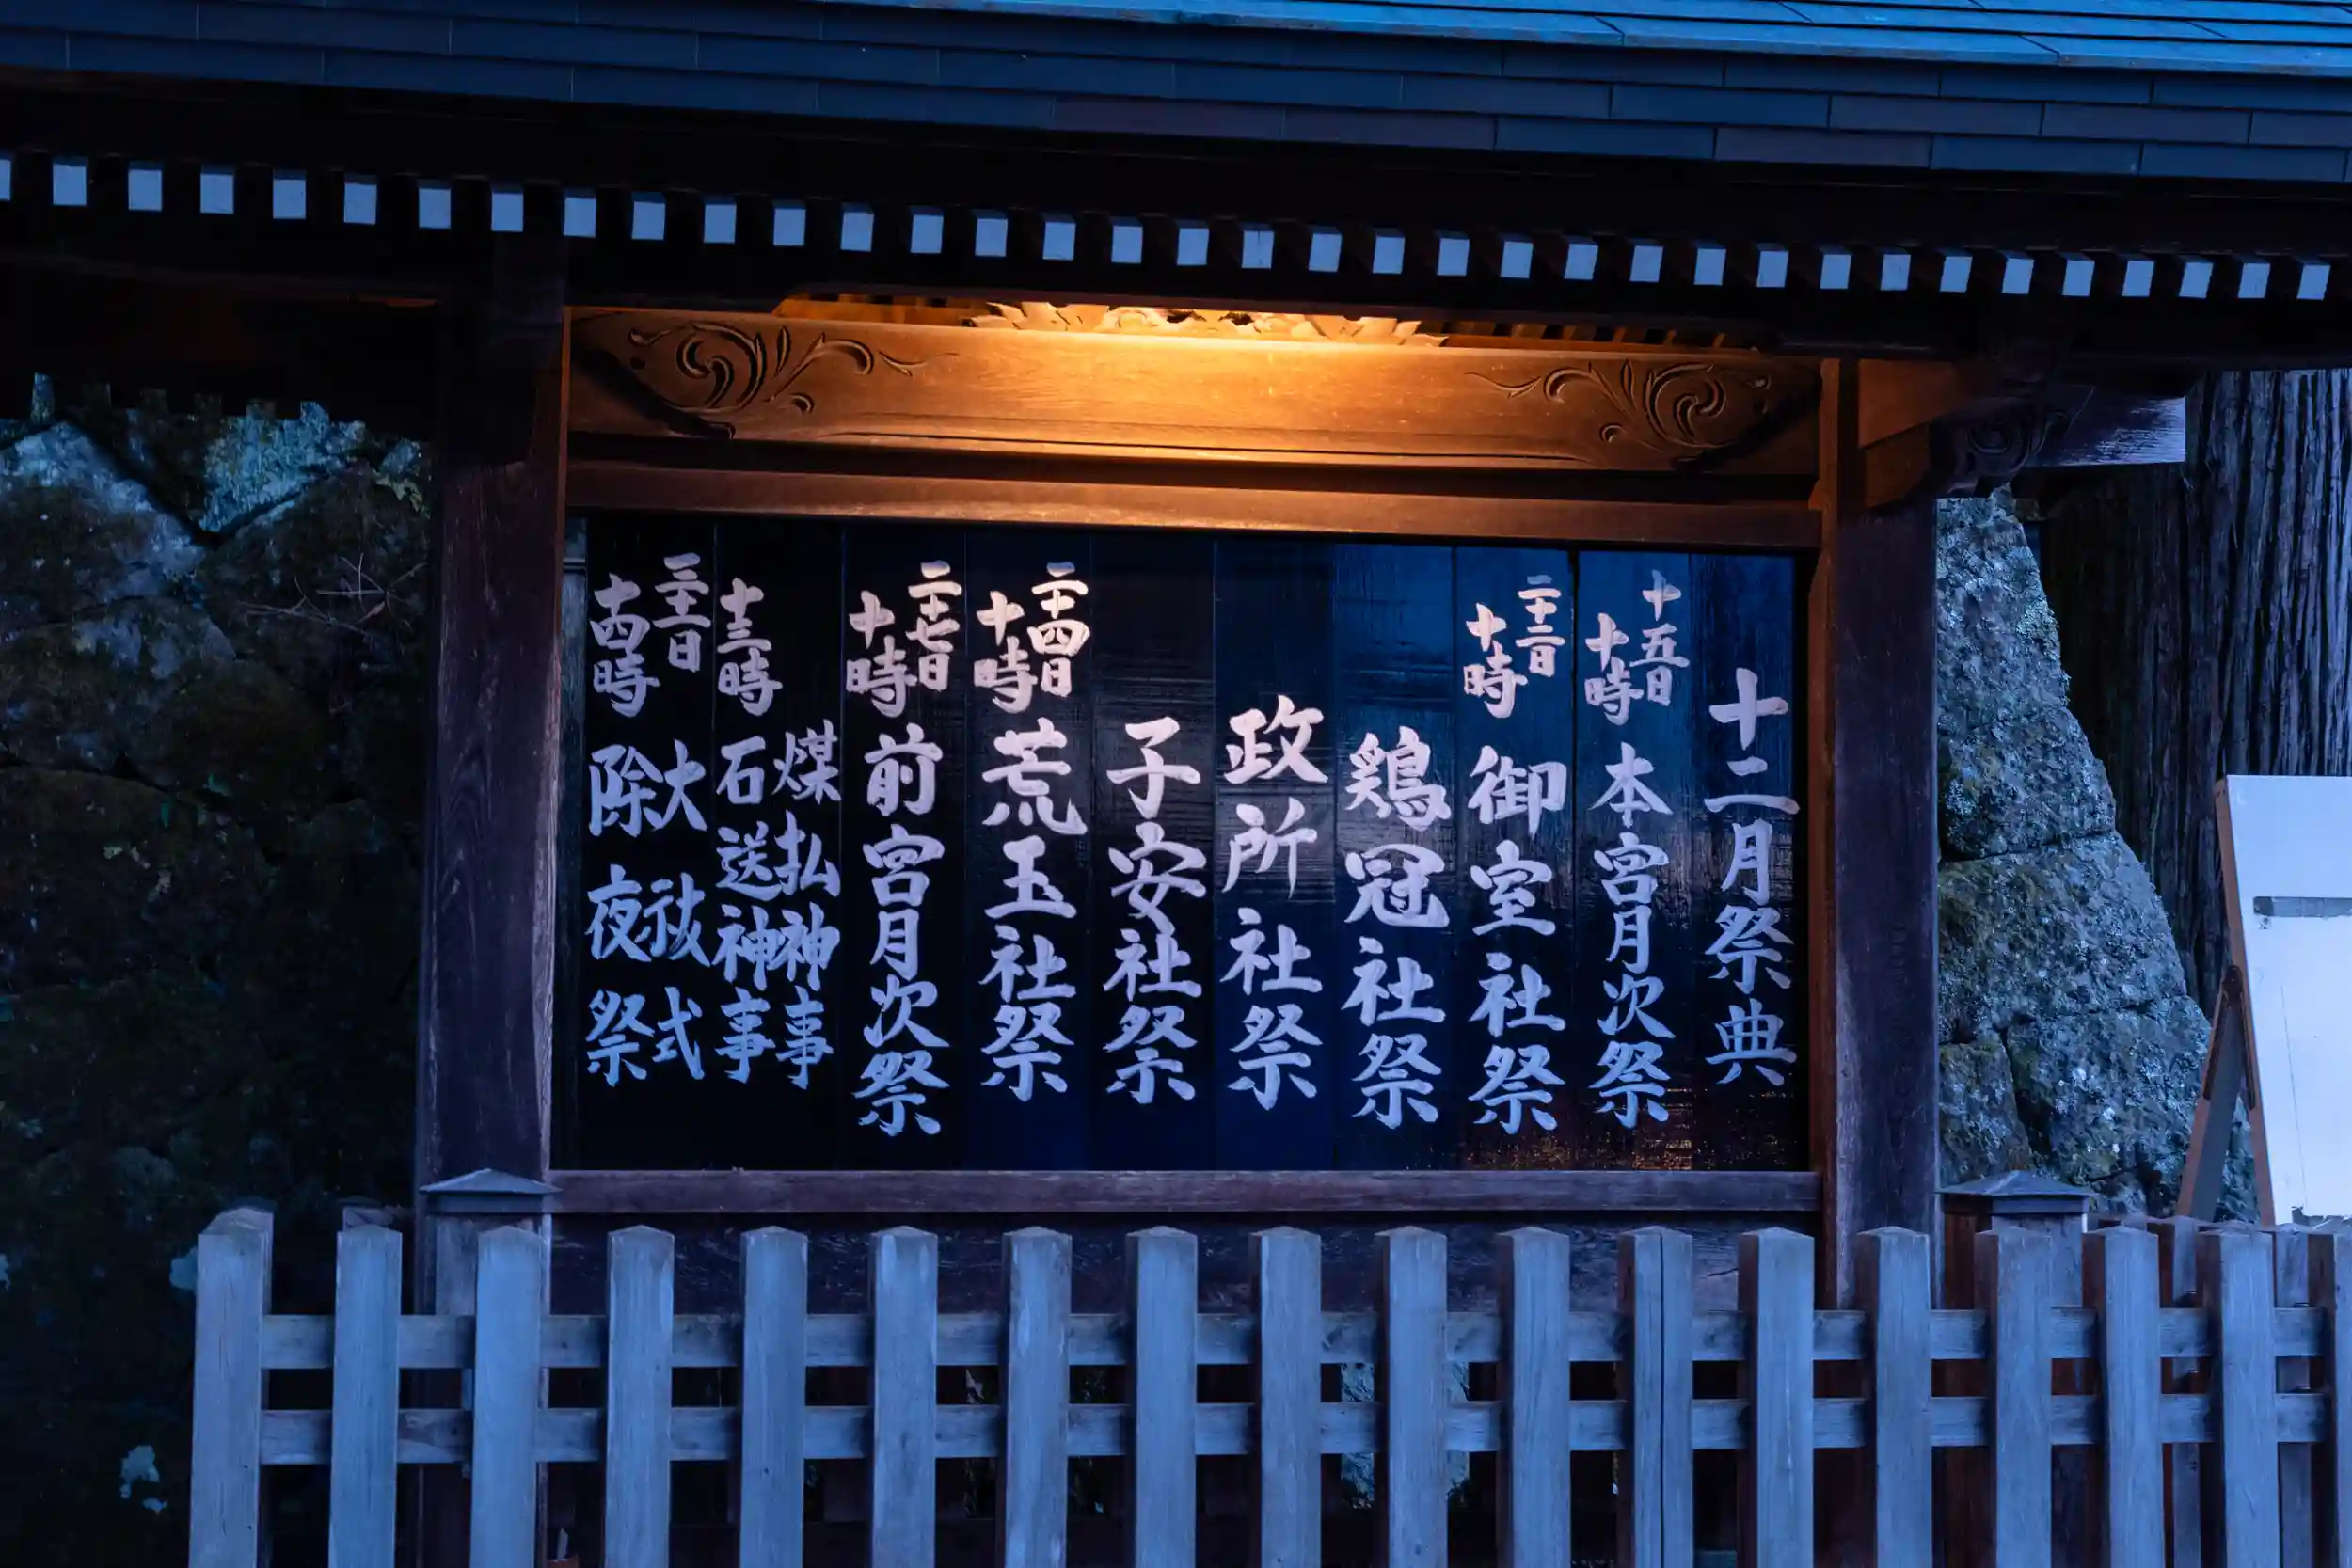 十二月祭典
十五日
十時
本宮月次祭
二十二日
十時
御室社祭
鶏冠社祭
政所社祭
子安社祭
二十四日
十時
荒玉社祭
二十七日
十時
前宮月次祭
十三時
煤払神事
石送神事
三十一日
十四時
大祓式
除夜祭